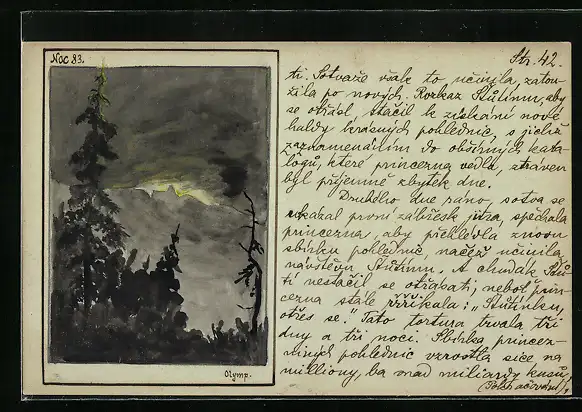 Noc 83.
Str. 42.
ti. Sotvaže však to učinila, zatou-
žila po nových. Rozkaz Štůtínu, aby
se otřásl, stačil k získání nové
haldy krásných pohlednic, s jichž
zaznamenáním do obšírných kata-
logů, které princezna vedla, stráven
byl příjemně zbytek dne.
Druhého dne ráno, sotva se
ukázal první zábřesk jitra, spěchala
princezna, aby přehlédla znovu
sbírku pohlednic, načež učinila
návštěvu Štůtínu. A chudák Štů-
tí nestačil se otřásati, neboť prin-
cezna stále říkala: „Štůtínku,
otřes se." Tato tortura trvala tři
dny a tři noci. Sbírka princez-
niných pohlednic vzrostla sice na
milliony, ba snad miliardy kusů,
(Pokračování)
Olymp.